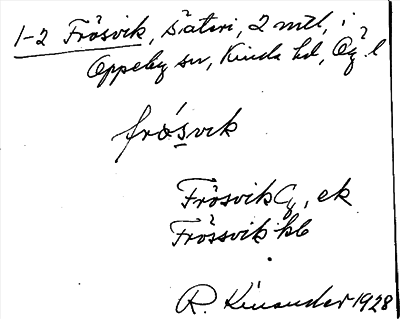 1-2 Frösvik, Säteri, 2 mtl, i
Oppeby sn, Kinda hd, Ög. l
frósvik
Frösvik G, ek
Frössvik hb
R. Kinander 1928